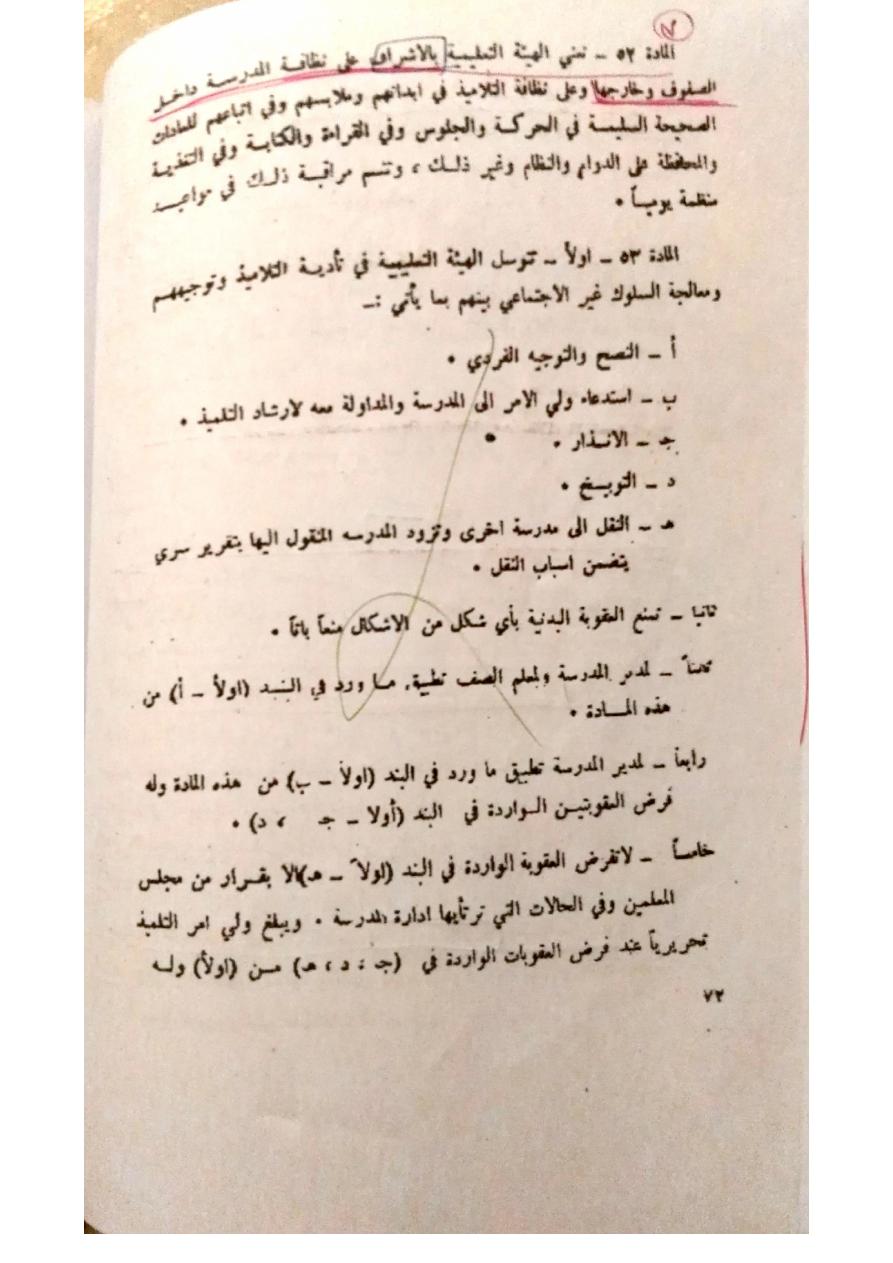 ٧
المادة ٥٢ ـ تعني الهيئة التعليمية بالاشراف على نظافة المدرسة داخل
الصفوف وخارجها وعلى نظافة التلاميذ في ابدانهم وملابسهم وفي اتباعهم للعادات
الصحيحة السليمة في الحركة والجلوس وفي القراءة والكتابة وفي التغذية
والمحافظة على الدوام والنظام وغير ذلك ، وتتم مراقبة ذلك في مواعيد
منظمة يومياً ٠
المادة ٥٣ ـ اولاً ـ تتوسل الهيئة التعليمية في تأدية التلاميذ وتوجيههم
ومعالجة السلوك غير الاجتماعي بينهم بما يأتي :ـ
أ ـ النصح والتوجيه الفردي ٠
ب ـ استدعاء ولي الامر الى المدرسة والمداولة معه لارشاد التلميذ ٠
جـ ـ الانذار ٠
د ـ التوبيخ ٠
هـ ـ النقل الى مدرسة اخرى وتزود المدرسه المنقول اليها بتقرير سري
يتضمن اسباب النقل ٠
ثانيا ـ تمنع العقوبة البدنية بأي شكل من الاشكال منعاً باتاً ٠
ـ لمدير المدرسة ولمعلم الصف ما ورد في البند (اولاً ـ أ) من
هذه المادة ٠
رابعاً ـ لمدير المدرسة تطبيق ما ورد في البند (اولاً ـ ب) من هذه المادة وله
فرض العقوبتين الواردة في البند (أولا ـ جـ ، د) ٠
خامساً ـ لاتفرض العقوبة الواردة في البند (اولاً ـ هـ)الا بقرار من مجلس
المعلمين وفي الحالات التي ترتأيها ادارة المدرسة ٠ ويبلغ ولي امر التلميذ
تحريرياً عند فرض العقوبات الواردة في (جـ ، د ، هـ) من (اولاً) وله
٧٢